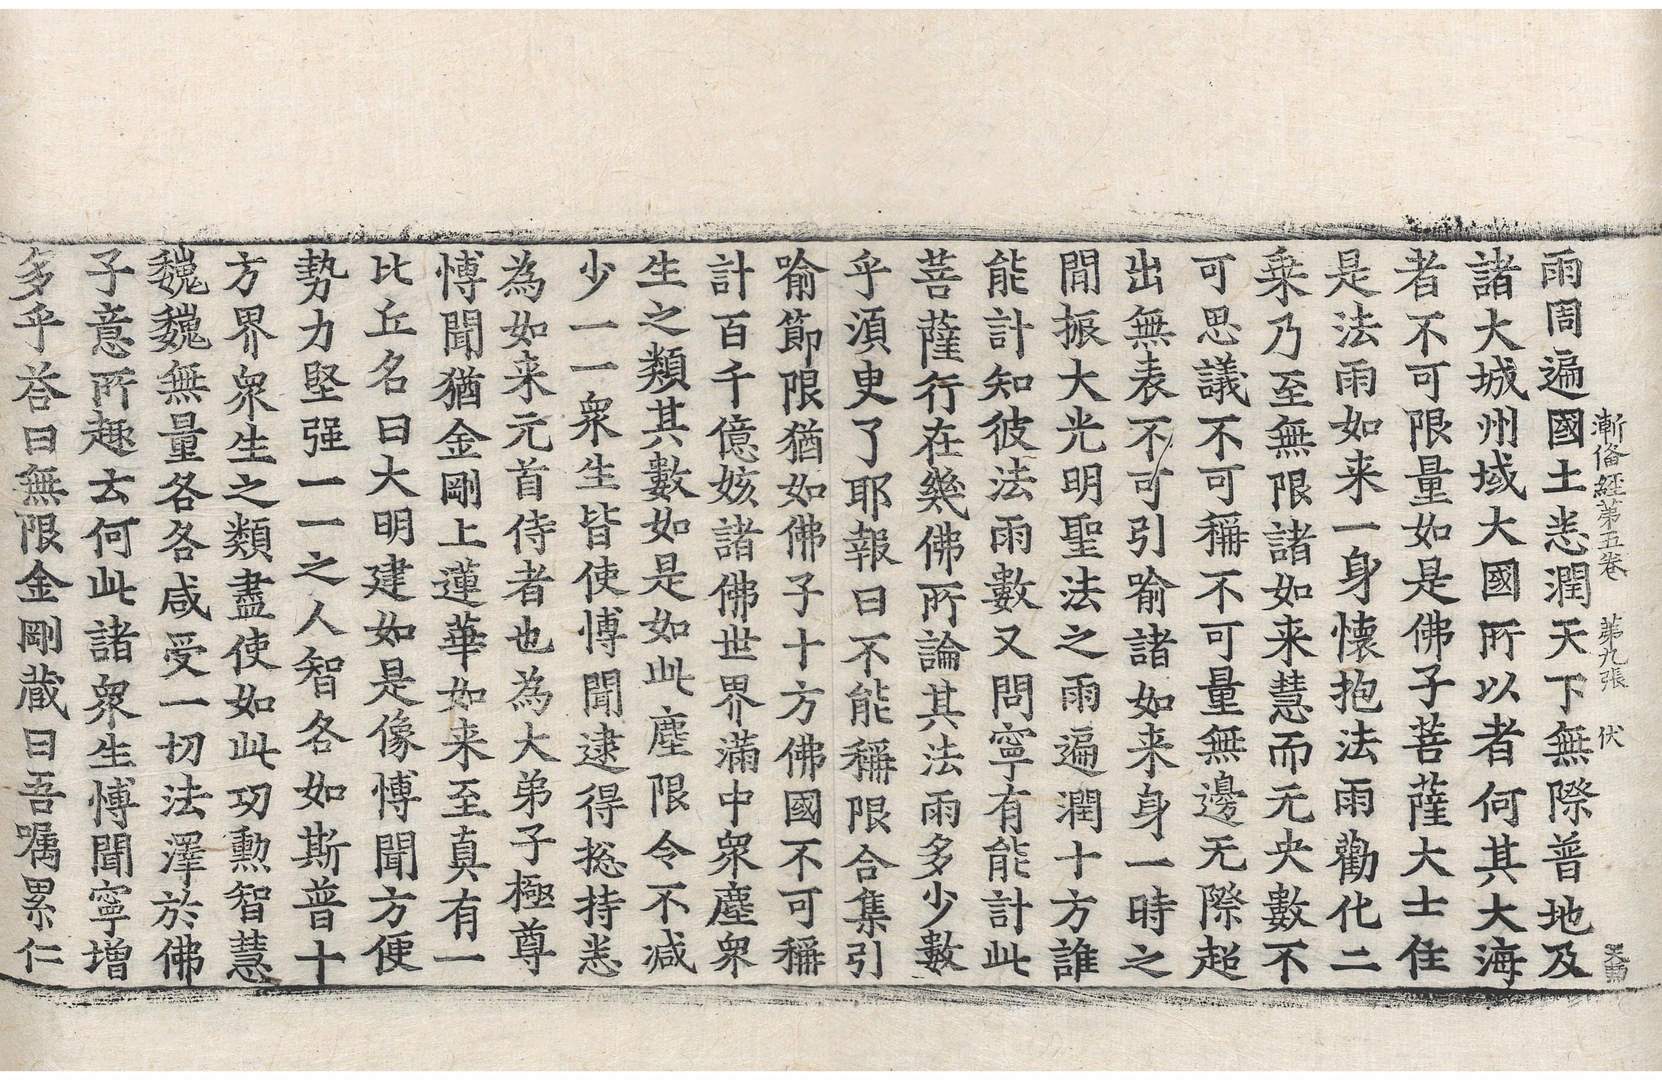 漸俻經第五卷　第九張　伏
雨周遍國土悉潤天下無際普地及
諸大城州域大國所以者何其大海
者不可限量如是佛子菩薩大士住
是法雨如来一身懷抱法雨勸化二
乗乃至無限諸如来慧而无央數不
可思議不可稱不可量無邊无際超
出無表不可引喻諸如来身一時之
閒振大光明聖法之雨遍潤十方誰
能計知彼法雨數又問寧有能計此
菩薩行在幾佛所論其法雨多少數
乎湏臾了耶報曰不能稱限合集引
喻節限猶如佛子十方佛國不可稱
計百千億姟諸佛世界滿中衆塵衆
生之類其數如是如此塵限令不减
少一一衆生皆使博聞逮得揔持悉
為如来元首侍者也為大弟子極尊
博聞猶金剛上蓮華如来至真有一
比丘名曰大明建如是像博聞方便
勢力堅强一一之人智各如斯普十
方界衆生之類盡使如此功勲智慧
巍巍無量各各咸受一切法澤於佛
子意所趣云何此諸衆生博聞寧增
多乎荅曰無限金剛藏曰吾嘱累仁